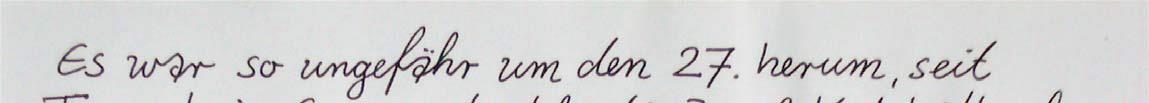 Es war so ungefähr um den 27. herum, seit